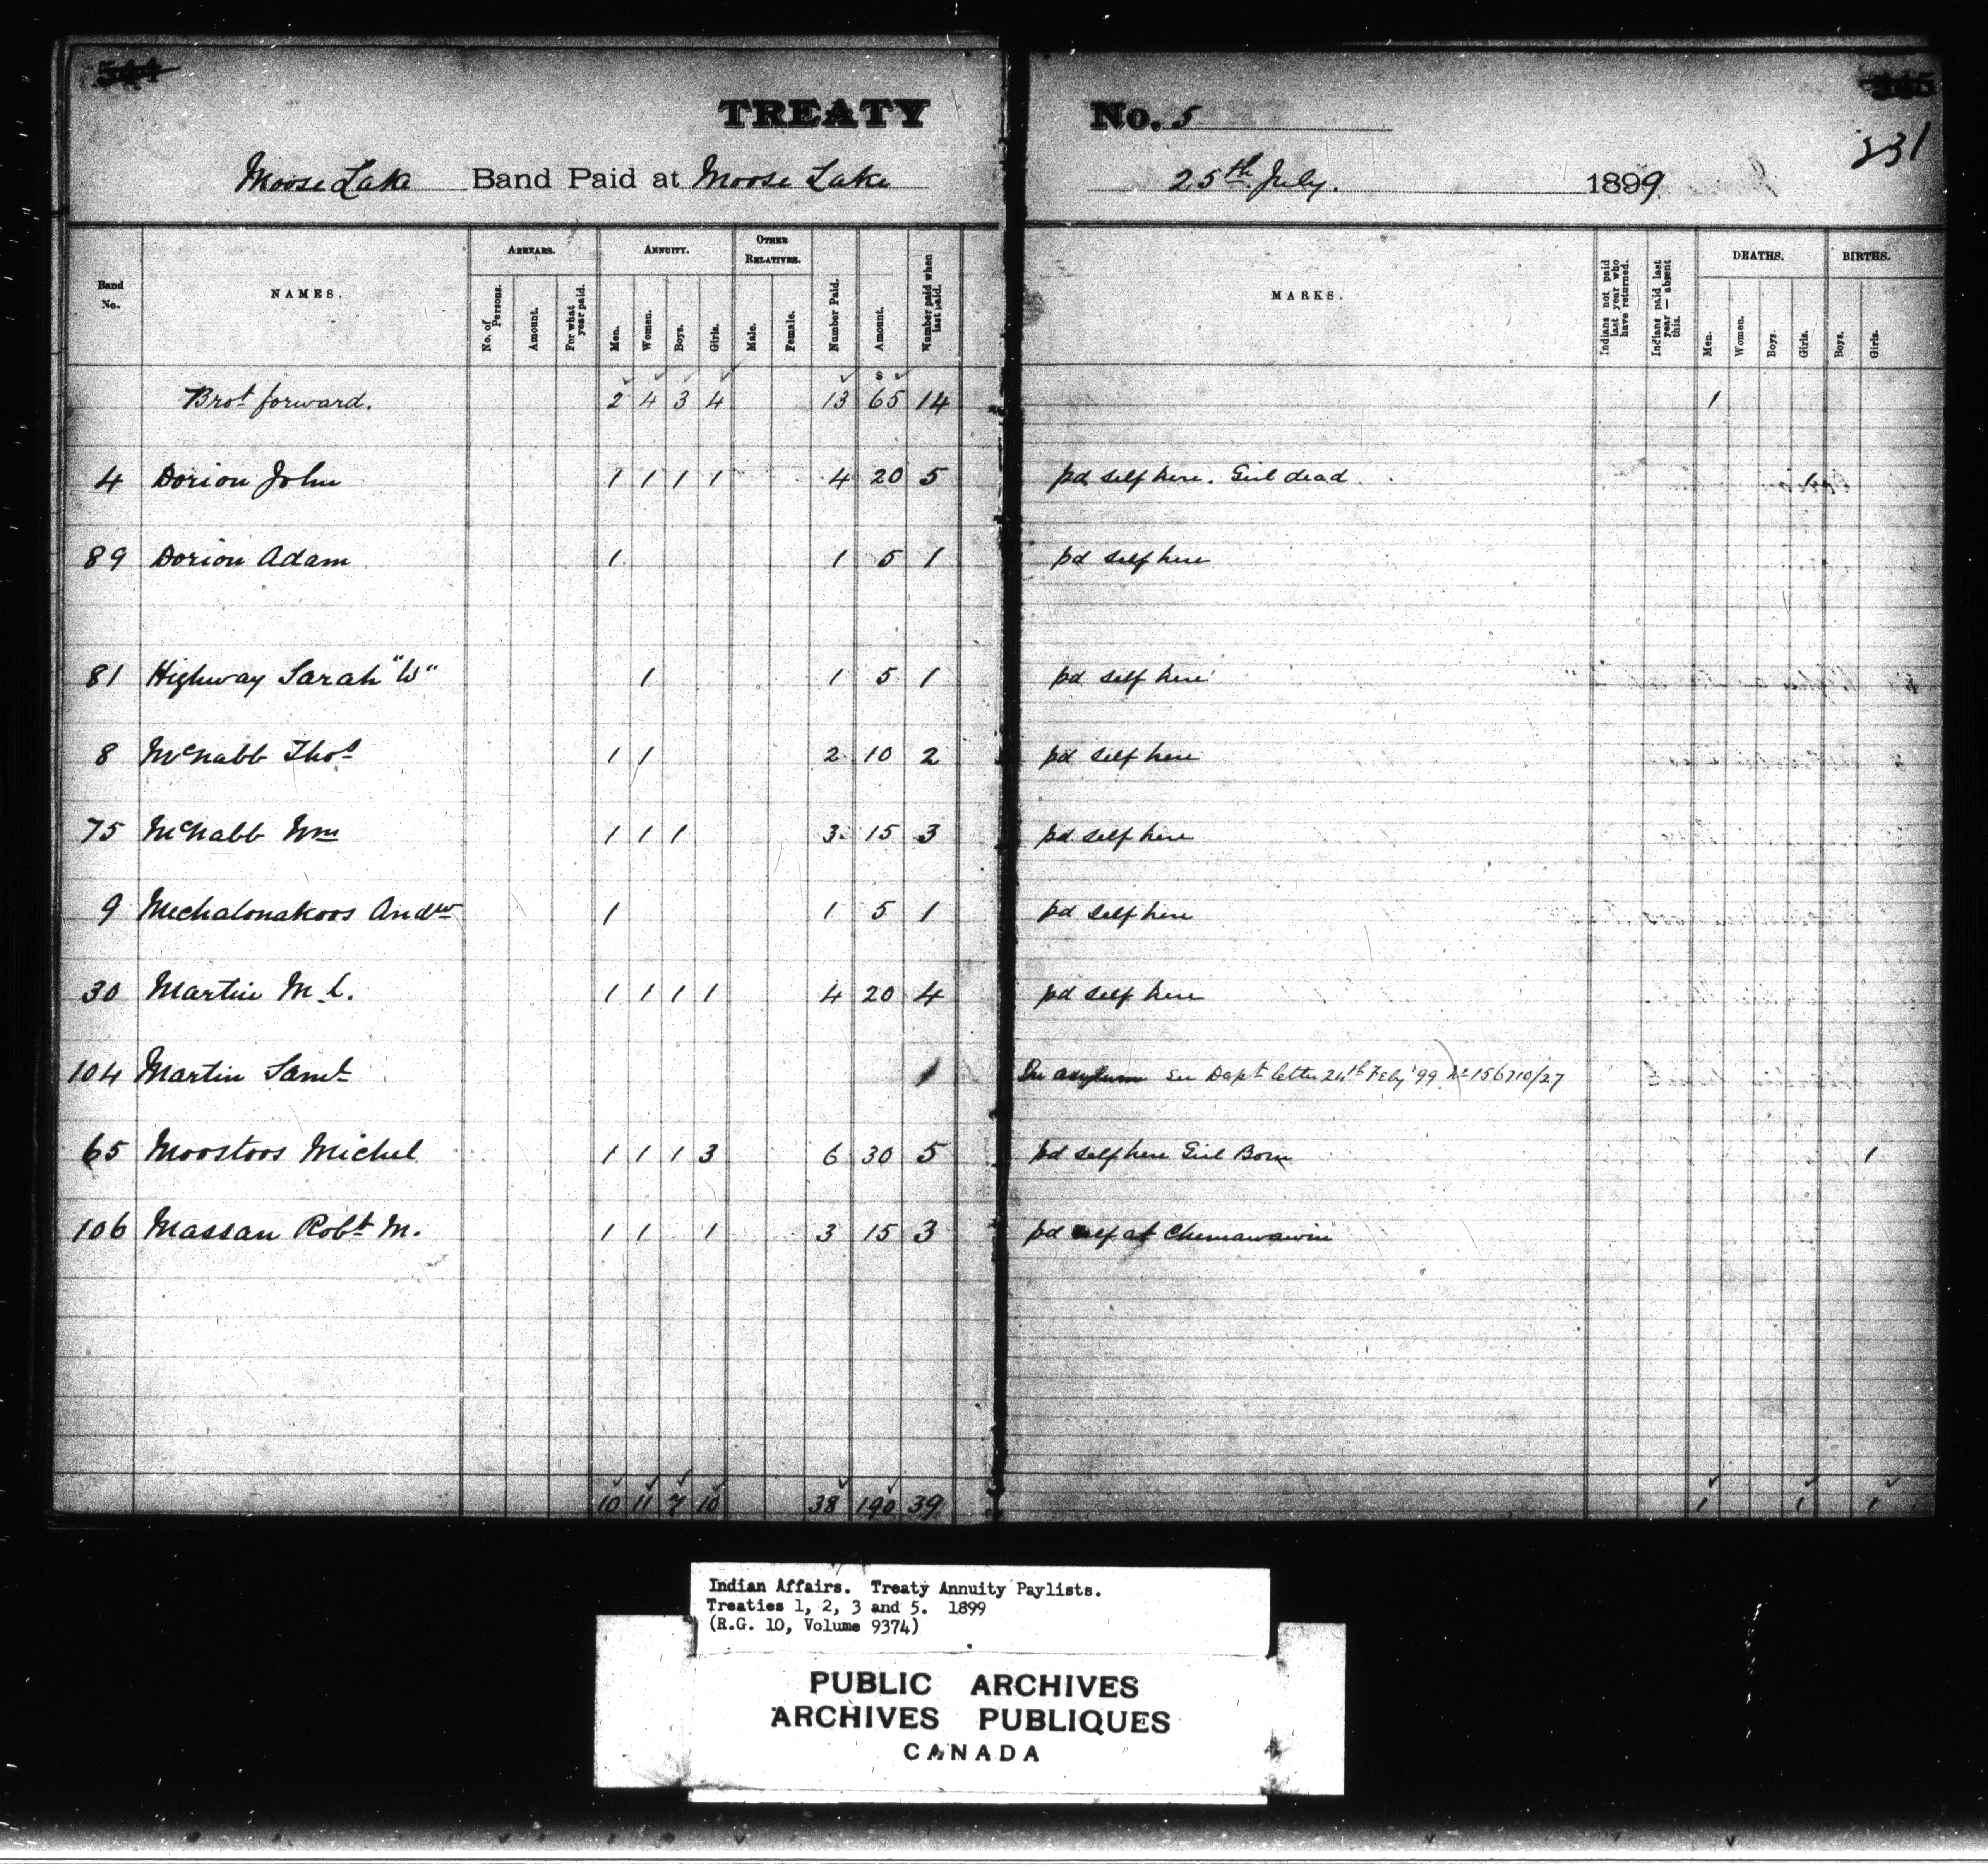 544
TREATY No. 5
345
331
Moose Lake Band Paid at Moose Lake 25th July. 1899
Band No. NAMES. ARREARS. ANNUITY. OTHER RELATIVES. Number Paid. Amount. Number paid when last paid. MARKS. Indians not paid last year who have returned. Indians paid last year — absent this. DEATHS. BIRTHS.
No. of Persons. Amount. For what year paid. Men. Women. Boys. Girls. Male. Female. Men. Women. Boys. Girls. Boys. Girls.
Brot forward. 2 4 3 4 13 $ 65 14 1
4 Dorion John 1 1 1 1 4 20 5 pd self here. Girl dead 1
89 Dorion Adam 1 1 5 1 pd self here
81 Highway Sarah "W" 1 1 5 1 pd self here
8 McNabb Thos 1 1 2 10 2 pd self here
75 McNabb Wm 1 1 1 3 15 3 pd self here
9 Mechalonakoos Andw 1 1 5 1 pd self here
30 Martin M.C. 1 1 1 1 4 20 4 pd self here
104 Martin Saml 1 In asylum See Dept letter 24th Feby '99 No 156710/27
65 Moostoos Michel 1 1 1 3 6 30 5 pd self here Girl Born 1
106 Massan Robt M. 1 1 1 3 15 3 pd self at Chemawawin
10 11 7 10 38 190 39 1 1 1
Indian Affairs. Treaty Annuity Paylists.
Treaties 1, 2, 3 and 5. 1899
(R.G. 10, Volume 9374)
PUBLIC ARCHIVES
ARCHIVES PUBLIQUES
CANADA